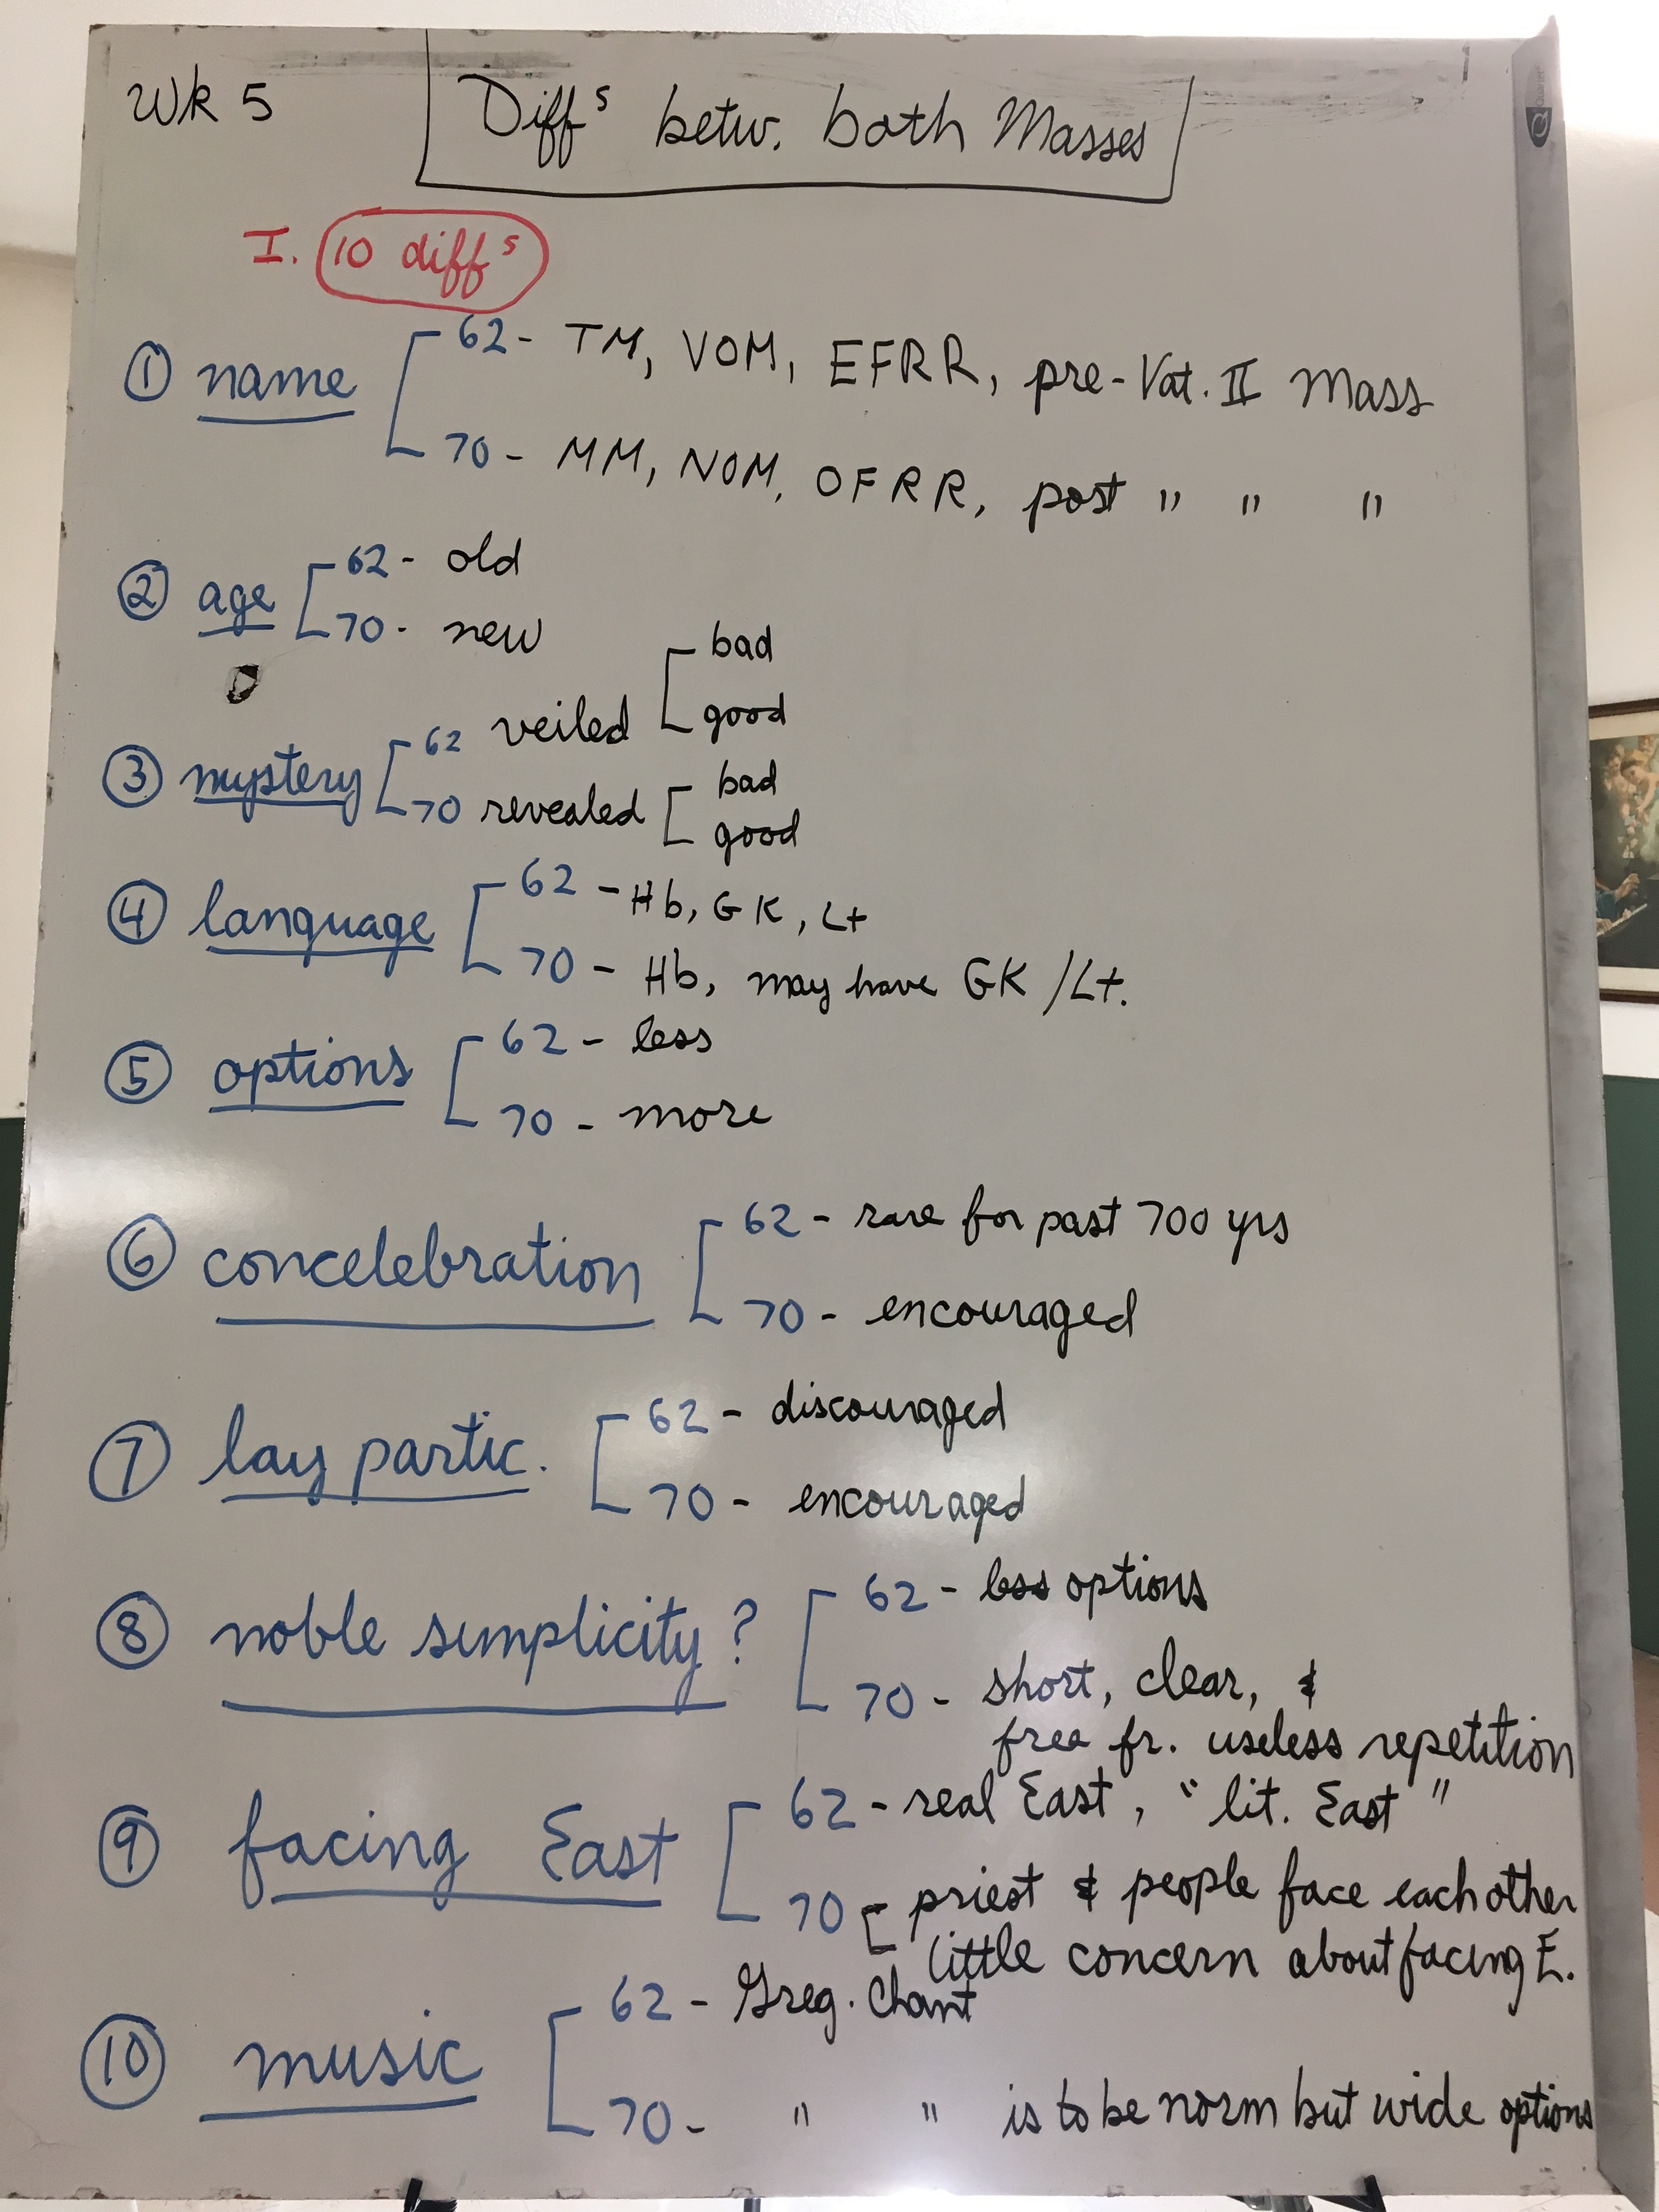 Wk 5
Diffs betw. both Masses
I. 10 diffs
① name
62 - TM, VOM, EFRR, pre-Vat. II Mass
70 - MM, NOM, OFRR, post " " "
② age
62 - old
70 - new
③ mystery
62 veiled
bad
good
70 revealed
bad
good
④ language
62 - Hb, GK, Lt
70 - Hb, may have GK / Lt.
⑤ options
62 - less
70 - more
⑥ concelebration
62 - rare for past 700 yrs
70 - encouraged
⑦ lay partic.
62 - discouraged
70 - encouraged
⑧ noble simplicity?
62 - less options
70 - short, clear, &
free fr. useless repetition
⑨ facing East
62 - real East, "lit. East"
70 priest & people face each other
little concern about facing E.
⑩ music
62 - Greg. Chant
70 - " " is to be norm but wide options